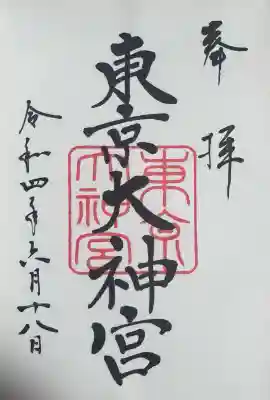 奉拝
東京大神宮
東京大神宮
令和四年六月十八日